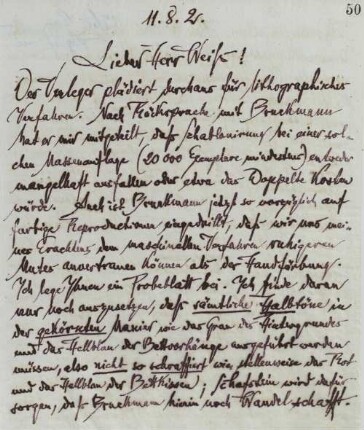 50
11. 8. 21.
Lieber Herr Weiß!
Der Verleger plädiert durchaus für lithographisches
Verfahren. Nach Rücksprache mit Bruckmann
hat er mir mitgeteilt, daß bei einer sol-
chen Massenauflage (20 000 Exemplare mindestens) entweder
mangelhaft ausfallen oder etwa das Doppelte kosten
würde. Auch ist Bruckmann jetzt so vorzüglich auf
farbige Reproductionen eingedrillt, daß wir uns mei-
nes Erachtens dem maschinellen Verfahren ruhigeren
Mutes anvertrauen können als der Handfärbung.
Ich lege Ihnen ein Probeblatt bei. Ich finde daran
nur noch auszusetzen, daß sämtliche Halbtöne in
der gekörnten Manier wie das Grau des Hintergrundes
und das Hellblau der Bettvorhänge ausgeführt werden
müssen, also nicht so schraffiert wie stellenweise das Rot
und das Hellblau der Bettkissen; Schafstein wird dafür
sorgen, daß Bruckmann hierin noch Wandel schafft.